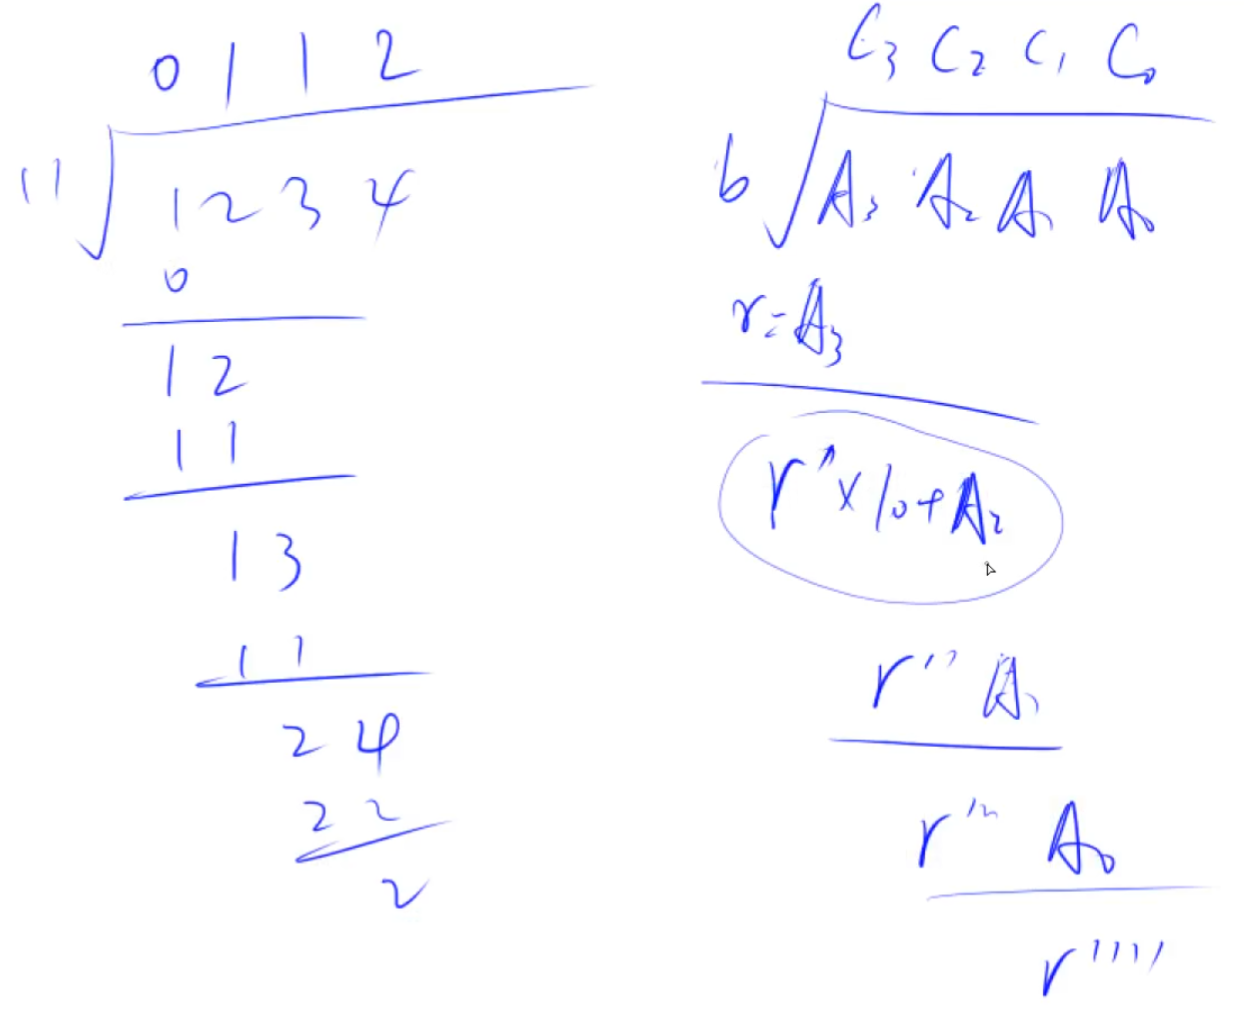 0 1 1 2
11 1 2 3 4
0
1 2
1 1
1 3
1 1
2 4
2 2
2
C3 C2 C1 C0
b A3 A2 A1 A0
r=A3
r'×10+A2
r'' A1
r''' A0
r''''